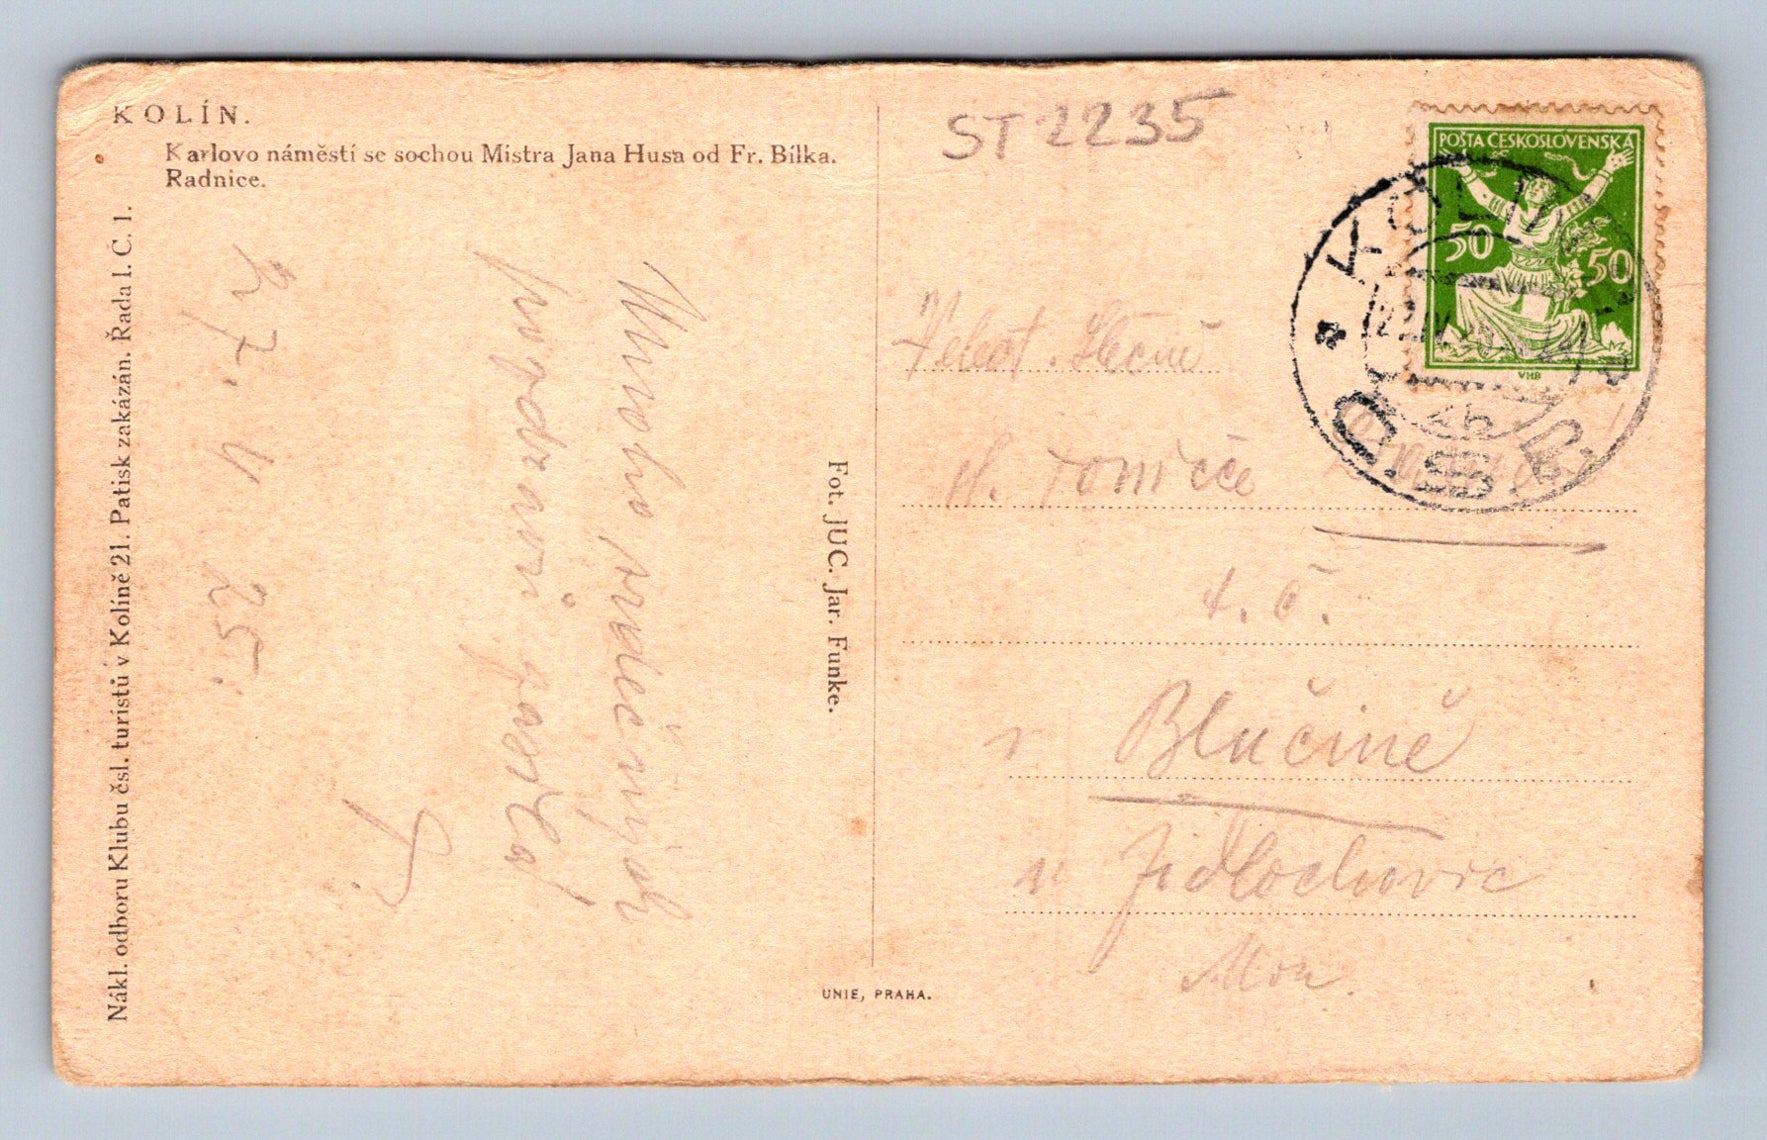 KOLÍN.
Karlovo náměstí se sochou Mistra Jana Husa od Fr. Bílka.
Radnice.
Nákl. odboru Klubu čsl. turistů v Kolíně 21. Patisk zakázán. Řada I. C. 1.
4 25.
Mnoho srdečných
pozdravů zasílá
Fot. JUC. Jar. Funke.
UNIE, PRAHA.
ST 2235
POŠTA ČESKOSLOVENSKÁ
50 50
VHB
KOLÍN
Slečně
t. č.
v Blučině
u Jidlochovic
Mor.